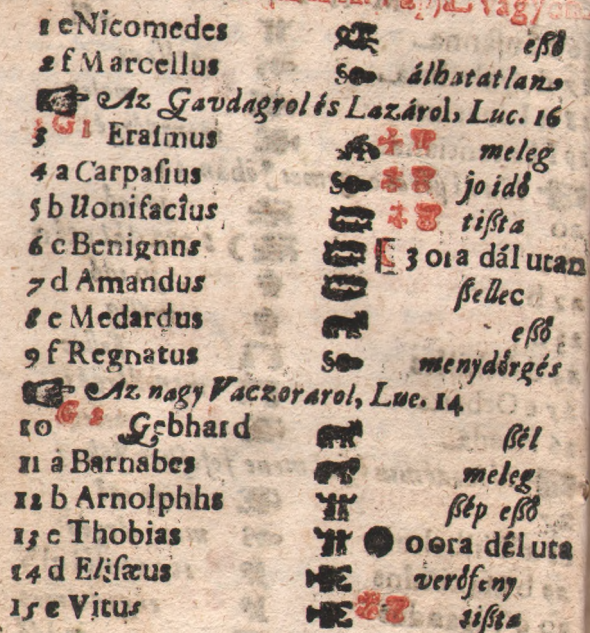 1 e Nicomedes eßő
2 f Marcellus álhatatlan
Az Gavdagrol és Lazárol, Luc. 16
3 G 1 Eraſmus meleg
4 a Carpaſius jo idő
5 b Uonifacius tißta
6 c Benignns 3 ora dál utan
7 d Amandus ßellec
8 e Medardus eßő
9 f Regnatus menydőrgés
Az nagy Vaczorarol, Luc. 14
10 G 2 Gebhard ßél
11 a Barnabes meleg
12 b Arnolphhs ßép eßő
13 c Thobias 0 ora dél uta
14 d Eliſæus verőfeny
15 e Vitus tißta